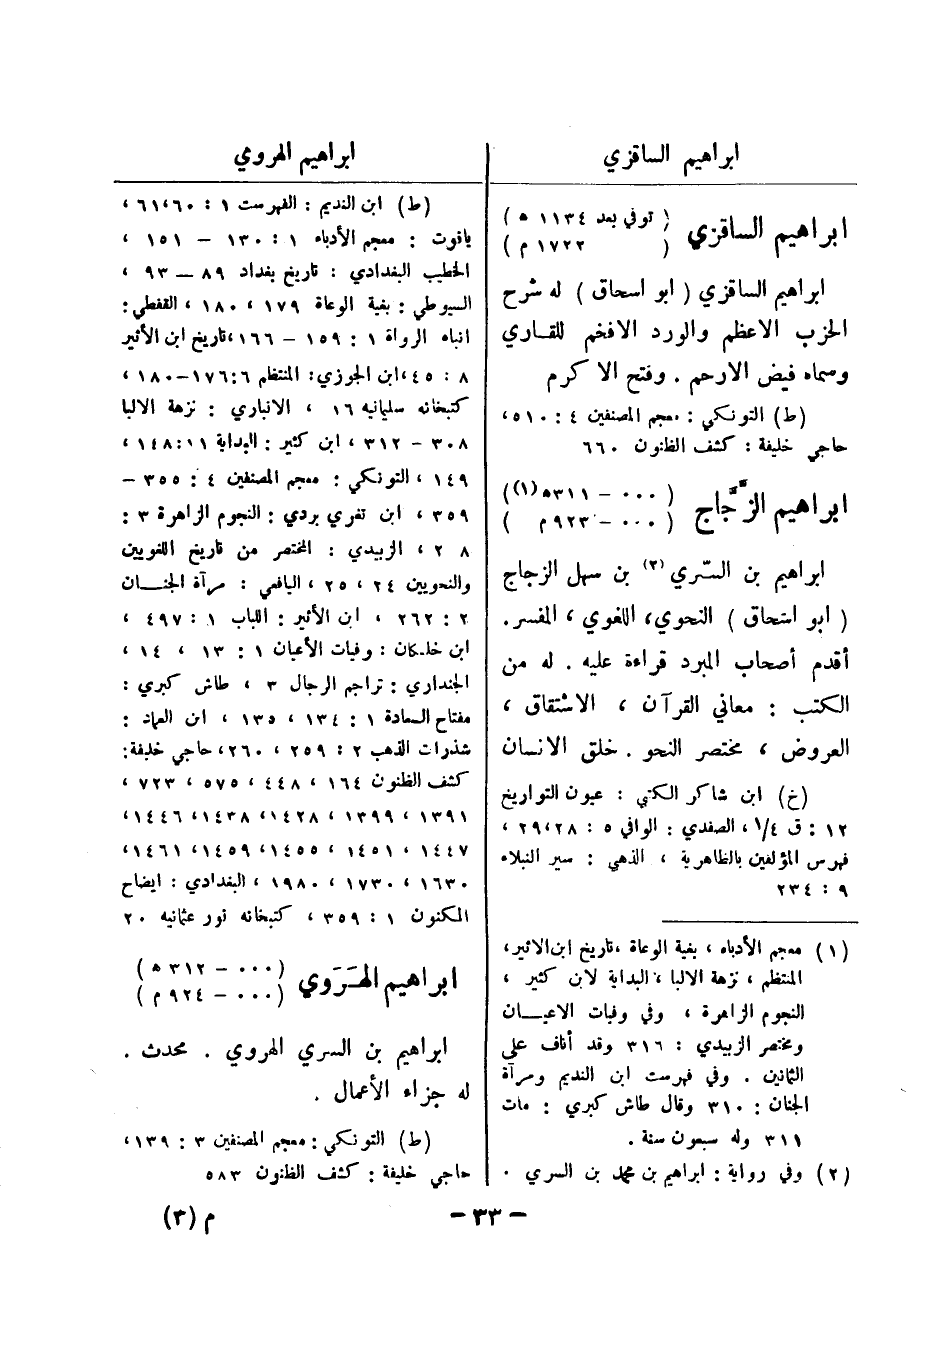 ابراهيم الساقزي
ابراهيم الساقزي ( توفي بعد ١١٣٤ ه )
( ١٧٢٢ م )
ابراهيم الساقزي ( ابو اسحاق ) له شرح
الحزب الاعظم والورد الافخم للقاري
وسماه فيض الارحم . وفتح الا كرم
(ط) التونكي : معجم المصنفين ٤ : ٥١٠ ،
حاجي خليفة : كشف الظنون ٦٦٠
ابراهيم الزَّجَّاج ( ٠٠٠ – ٣١١ه(١) )
( ٠٠٠ – ٩٢٣م )
ابراهيم بن السّري (٢) بن سهل الزجاج
( ابو اسحاق ) النحوي، اللغوي ، المفسر.
أقدم أصحاب المبرد قراءة عليه . له من
الكتب : معاني القرآن ، الاشتقاق ،
العروض ، مختصر النحو . خلق الانسان
(خ) ابن شاكر الكتبي : عيون التواريخ
١٢ : ق ١/٤ ، الصفدي : الوافي ٥ : ٢٨،٢٩ ،
فهرس المؤلفين بالظاهرية ، الذهبي : سير النبلاء
٩ : ٢٣٤
(١) معجم الأدباء ، بغية الوعاة ،تاريخ ابن الاثير،
المنتظم ، نزهة الالبا ، البداية لابن كثير ،
النجوم الزاهرة ، وفي وفيات الاعيـان
ومختصر الزبيدي : ٣١٦ وقد أناف على
الثمانين . وفي فهرست ابن النديم ومرآة
الجنان : ٣١٠ وقال طاش كبري : مات
٣١١ وله سبعون سنة .
(٢) وفي رواية : ابراهيم بن محمد بن السري .
ابراهيم الهروي
(ط) ابن النديم : الفهرست ١ : ٦٠،٦١ ،
ياقوت : معجم الأدباء ١ : ١٣٠ – ١٥١ ،
الخطيب البغدادي : تاريخ بغداد ٨٩ – ٩٣ ،
السيوطي : بغية الوعاة ١٧٩ ، ١٨٠ ، القفطي:
انباه الرواة ١ : ١٥٩ – ١٦٦،تاريخ ابن الأثير
٨ : ٤٥،ابن الجوزي: المنتظم ٦:١٧٦–١٨٠ ،
كتبخانه سليمانيه ١٦ ، الانباري : نزهة الالبا
٣٠٨ – ٣١٢ ، ابن كثير : البداية ١١:١٤٨ ،
١٤٩ ، التونكي : معجم المصنفين ٤ : ٣٥٥ –
٣٥٩ ، ابن تغري بردي : النجوم الزاهرة ٣ :
٢٠٨ ، الزبيدي : المختصر من تاريخ اللغويين
والنحويين ٢٤ ، ٢٥ ، اليافعي : مرآة الجنـان
٢ : ٢٦٢ ، ابن الأثير : اللباب ١ : ٤٩٧ ،
ابن خلكان : وفيات الأعيان ١ : ١٣ ، ١٤ ،
الجنداري : تراجم الرجال ٣ ، طاش كبري :
مفتاح السعادة ١ : ١٣٤ ، ١٣٥ ، ابن العماد :
شذرات الذهب ٢ : ٢٥٩ ، ٢٦٠، حاجي خليفة:
كشف الظنون ١٦٤ ، ٤٤٨ ، ٥٧٥ ، ٧٢٣ ،
١٣٩١ ، ١٣٩٩ ، ١٤٢٨ ،١٤٣٨ ،١٤٤٦ ،
١٤٤٧ ، ١٤٥١ ، ١٤٥٥ ،١٤٥٩ ،١٤٦١ ،
١٦٣٠ ، ١٧٣٠ ، ١٩٨٠ ، البغدادي : ايضاح
المكنون ١ : ٣٥٩ ، كتبخانه نور عثمانيه ٢٠
ابراهيم الهَرَوي ( ٠٠٠ – ٣١٢ ه )
( ٠٠٠ – ٩٢٤ م )
ابراهيم بن السري الهروي . محدث .
له جزاء الأعمال .
(ط) التونكي : معجم المصنفين ٣ : ١٣٩ ،
حاجي خليفة : كشف الظنون ٥٨٣
– ٣٣ –
م (٣)